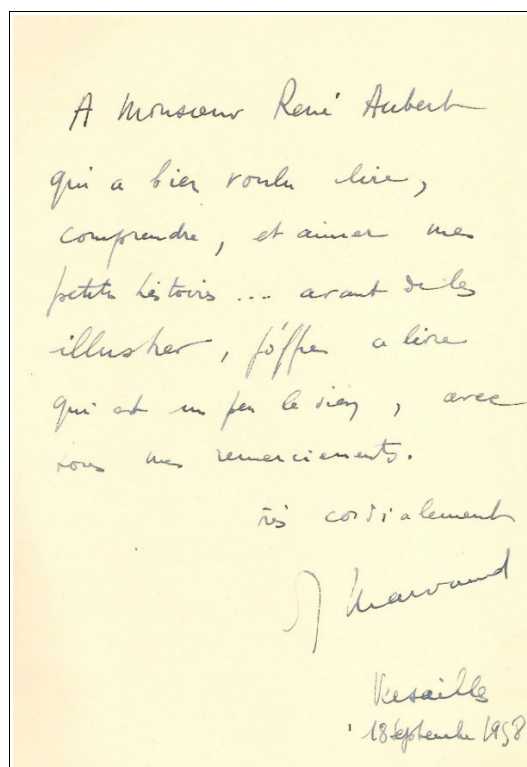 A Monsieur René Aubert
qui a bien voulu lire,
comprendre, et aimer mes
petites histoires ... avant de les
illustrer, j'offre ce livre
qui est un peu le sien, avec
tous mes remerciements.
Très cordialement
Versailles
18 Septembre 1958